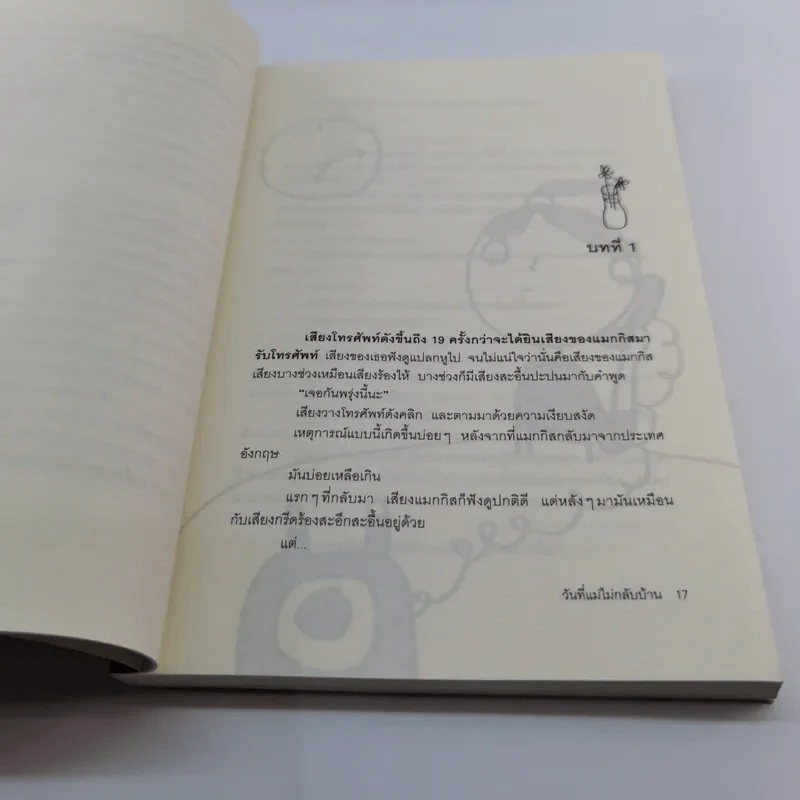 บทที่ 1
เสียงโทรศัพท์ดังขึ้นถึง 19 ครั้งกว่าจะได้ยินเสียงของแมกกิสมา
รับโทรศัพท์ เสียงของเธอฟังดูแปลกหูไป จนไม่แน่ใจว่านั่นคือเสียงของแมกกิส
เสียงบางช่วงเหมือนเสียงร้องไห้ บางช่วงก็มีเสียงสะอื้นปะปนมากับคำพูด
“เจอกันพรุ่งนี้นะ”
เสียงวางโทรศัพท์ดังคลิก และตามมาด้วยความเงียบสงัด
เหตุการณ์แบบนี้เกิดขึ้นบ่อยๆ หลังจากที่แมกกิสกลับมาจากประเทศ
อังกฤษ
มันบ่อยเหลือเกิน
แรกๆที่กลับมา เสียงแมกกิสก็ฟังดูปกติดี แต่หลังๆมามันเหมือน
กับเสียงกรีดร้องสะอึกสะอื้นอยู่ด้วย
แต่...
วันที่แม่ไม่กลับบ้าน 17